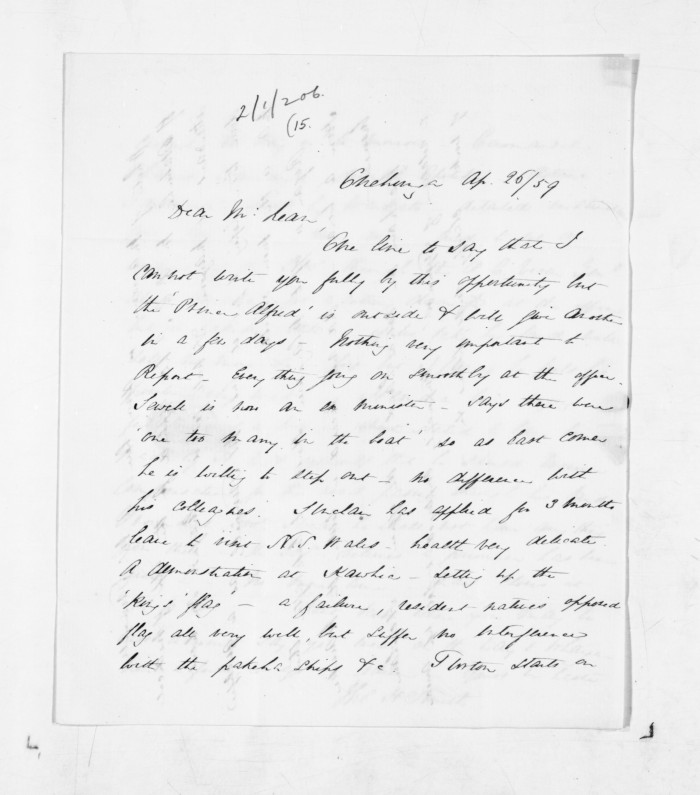 2/1/206.
(15.
Onehunga Ap. 26/59
Dear McLean
One line to say that I
cannot write you fully by this opportunity but
the 'Prince Alfred' is outside & will give another
in a few days - Nothing very important to
Report - Every thing going on smoothly at the office.
Sewell is now an ex minister - says there were
'one too many in the boat' so as last comer
he is willing to step out - no difference with
his colleagues. Sinclair has applied for 3 months
leave to visit N.S. Wales - health very delicate.
A demonstration at Kawhia - setting up the
'king's flag' - a failure, resident natives opposed
flag all very well, but suffer no interference
with the pakeha ships &c. starts on